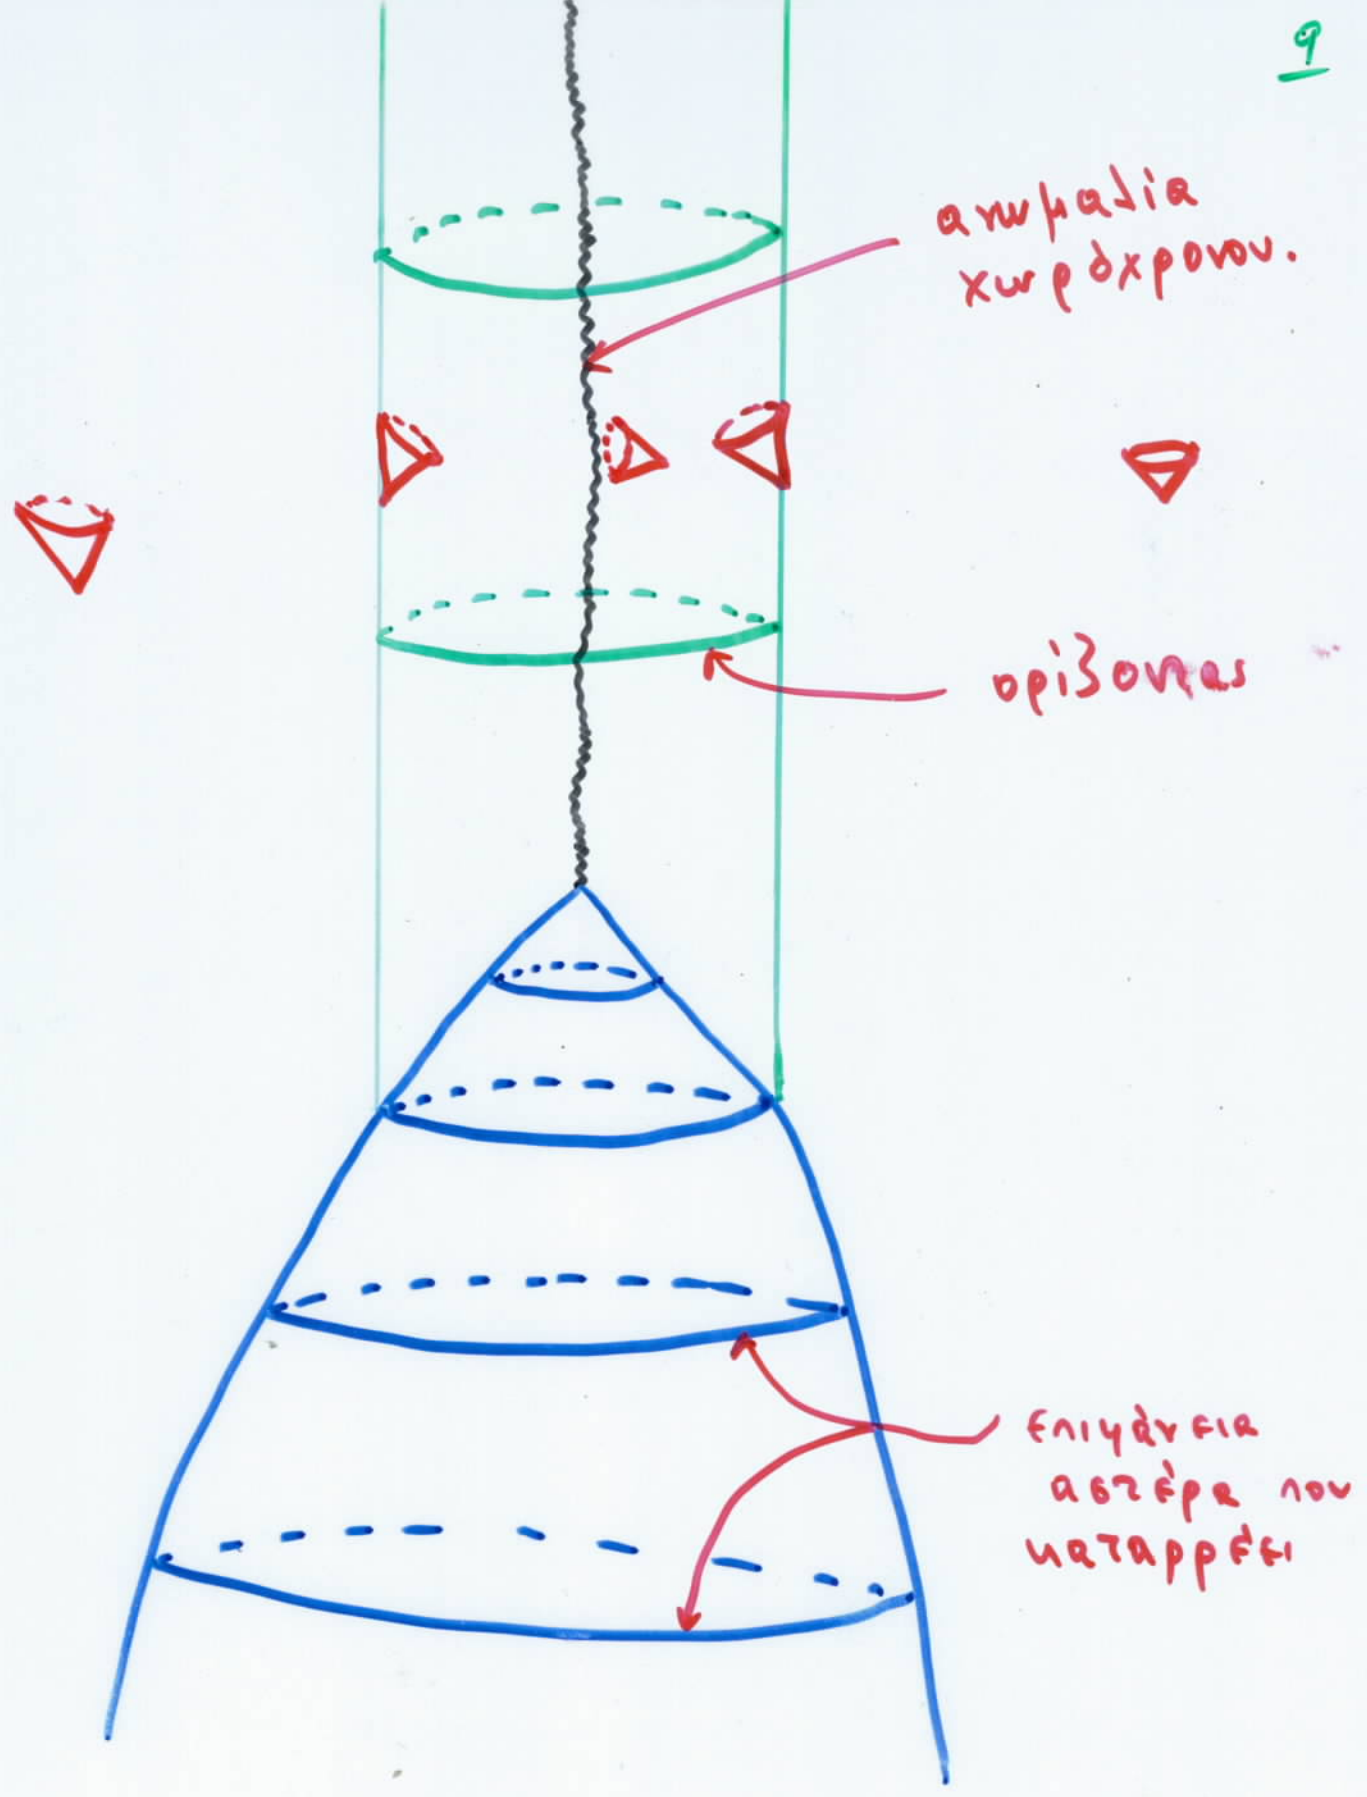 9
ανωμαλία
χωρόχρονου.
ορίζοντας
επιφάνεια
αστέρα που
καταρρέει